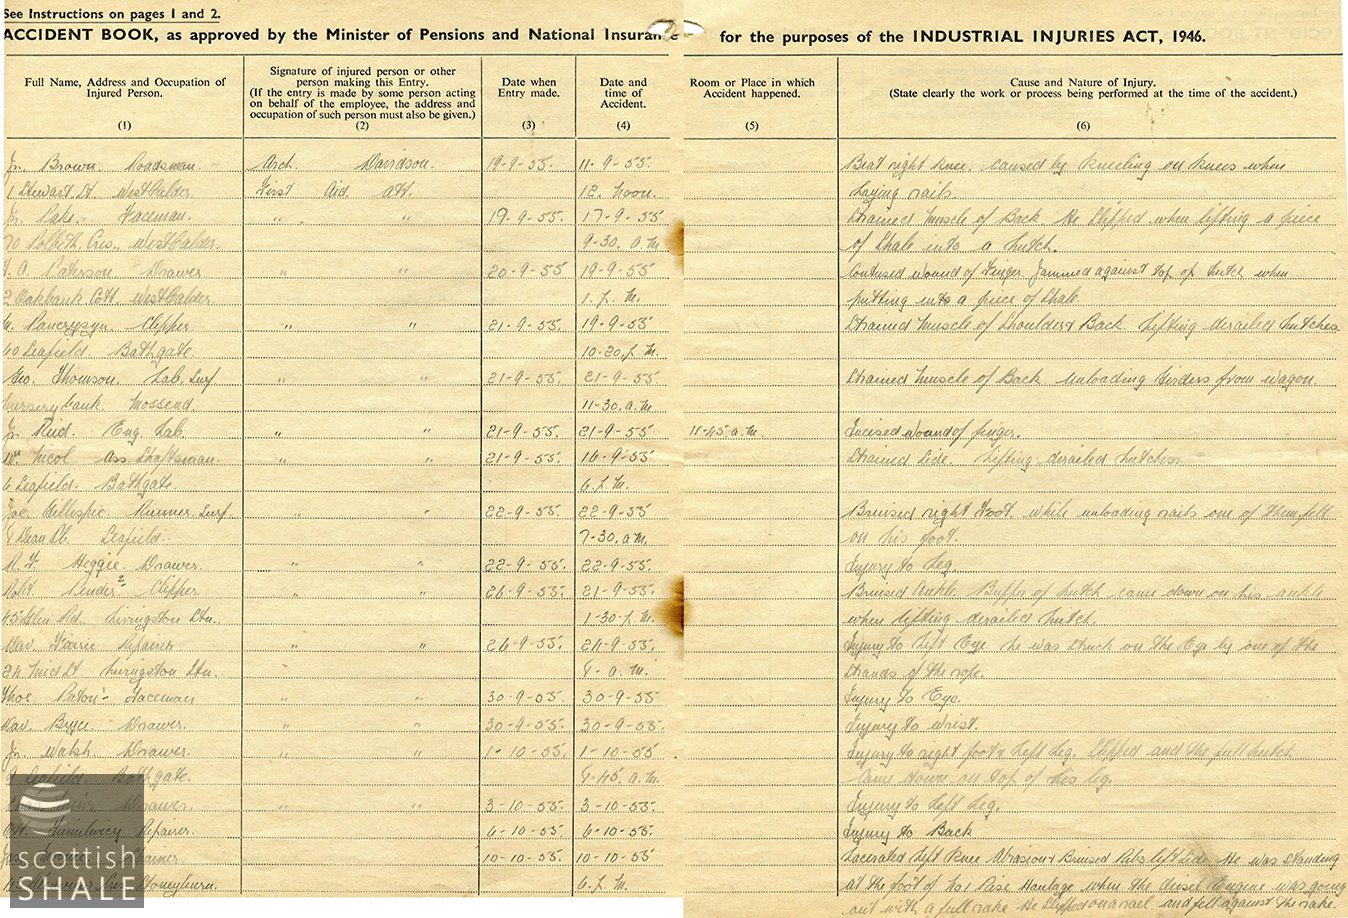 See Instructions on pages 1 and 2.
ACCIDENT BOOK, as approved by the Minister of Pensions and National Insurance for the purposes of the INDUSTRIAL INJURIES ACT, 1946.
Full Name, Address and Occupation of Injured Person. (1)
Signature of injured person or other person making this Entry. (If the entry is made by some person acting on behalf of the employee, the address and occupation of such person must also be given.) (2)
Date when Entry made. (3)
Date and time of Accident. (4)
Room or Place in which Accident happened. (5)
Cause and Nature of Injury. (State clearly the work or process being performed at the time of the accident.) (6)
Jn. Brown. Roadsman. Arch. Davidson. 19-9-55. 11-9-55. Beat right knee, caused by kneeling on knees when
1 Stewart St. West Calder. First Aid Att. 12. Noon. laying rails.
Faceman. " " 19-9-55 17-9-55 Strained muscle of Back. He slipped when lifting a piece
70 Polbeth Cres., West Calder. 9-30. a.m. of Shale into a hutch.
Paterson Drawer " " 20-9-55 19-9-55 Contused wound of finger. Jammed against top of hutch when
2 Oakbank Cott. West Calder. 1. p.m. putting into a piece of Shale.
Clipper " " 21-9-55. 19-9-55 Strained muscle of Shoulder & Back. Lifting derailed hutches.
40 Leafield. Bathgate 10-20. p.m.
Geo. Thomson. Lab. Surf. " " 21-9-55. 21-9-55 Strained muscle of Back unloading girders from wagon.
Nurserybank. Mossend. 11-30. a.m.
Jn. Reid. Eng. Lab. " " 21-9-55 21-9-55 11-45 a.m. Incised wound of finger.
Wm. Nicol Ass. Shaftsman. " " 21-9-55 16-9-55. Strained side. Lifting derailed hutches
6 Leafield. Bathgate. 6. p.m.
Gillespie Runner. Surf. " " 22-9-55 22-9-55 Bruised right foot while unloading rails one of them fell
Leafield. 7-30. a.m. on his foot.
Heggie. Drawer. " " 22-9-55. 22-9-55. Injury to leg.
Robt. Render? Clipper " " 26-9-55. 21-9-55. Bruised ankle. Buffer of hutch came down on his ankle
Rd. Livingston Stn. 1-30-p.m. when lifting derailed hutch.
Dav. Repairer " " 26-9-55. 24-9-55. Injury to left Eye. He was struck on the Eye by one of the
24 Mid St Livingston Stn. a.m. strands of the rope.
Thos. Paton Faceman " " 30-9-55 30-9-55 Injury to Eye.
Dav. Bryce Drawer. " " 30-9-55. 30-9-55. Injury to wrist.
Jn. Walsh Drawer. " " 1-10-55 1-10-55 Injury to right foot & left leg. Slipped and the full hutch
Leafield. Bathgate. a.m. came down on top of his leg.
Drawer " " 3-10-55. 3-10-55. Injury to left leg.
Repairer. 6-10-55. 6-10-55. Injury to Back
10-10-55. 10-10-55. Lacerated left knee Abrasion & Bruised Ribs left side. He was standing
Stoneyburn. 6. p.m. at the foot of No1 Rise Haulage when the diesel Engine was going
out with a full rake He slipped on a rail and fell against the rake.
scottish
SHALE